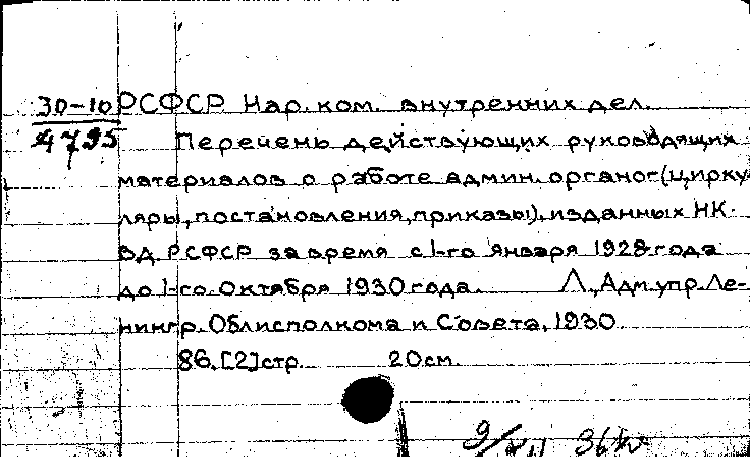 30-10 РСФСР Нар. ком. внутренних дел.
4795 Перечень действующих руководящих
материалов о работе админ. органов (цирку
ляры, постановления, приказы), изданных НК-
ВД РСФСР за время с 1-го января 1928 года
до 1-го октября 1930 года. Л., Адм. упр. Ле-
нингр. Облисполкома и Совета, 1930
86. [2] стр. 20 см.